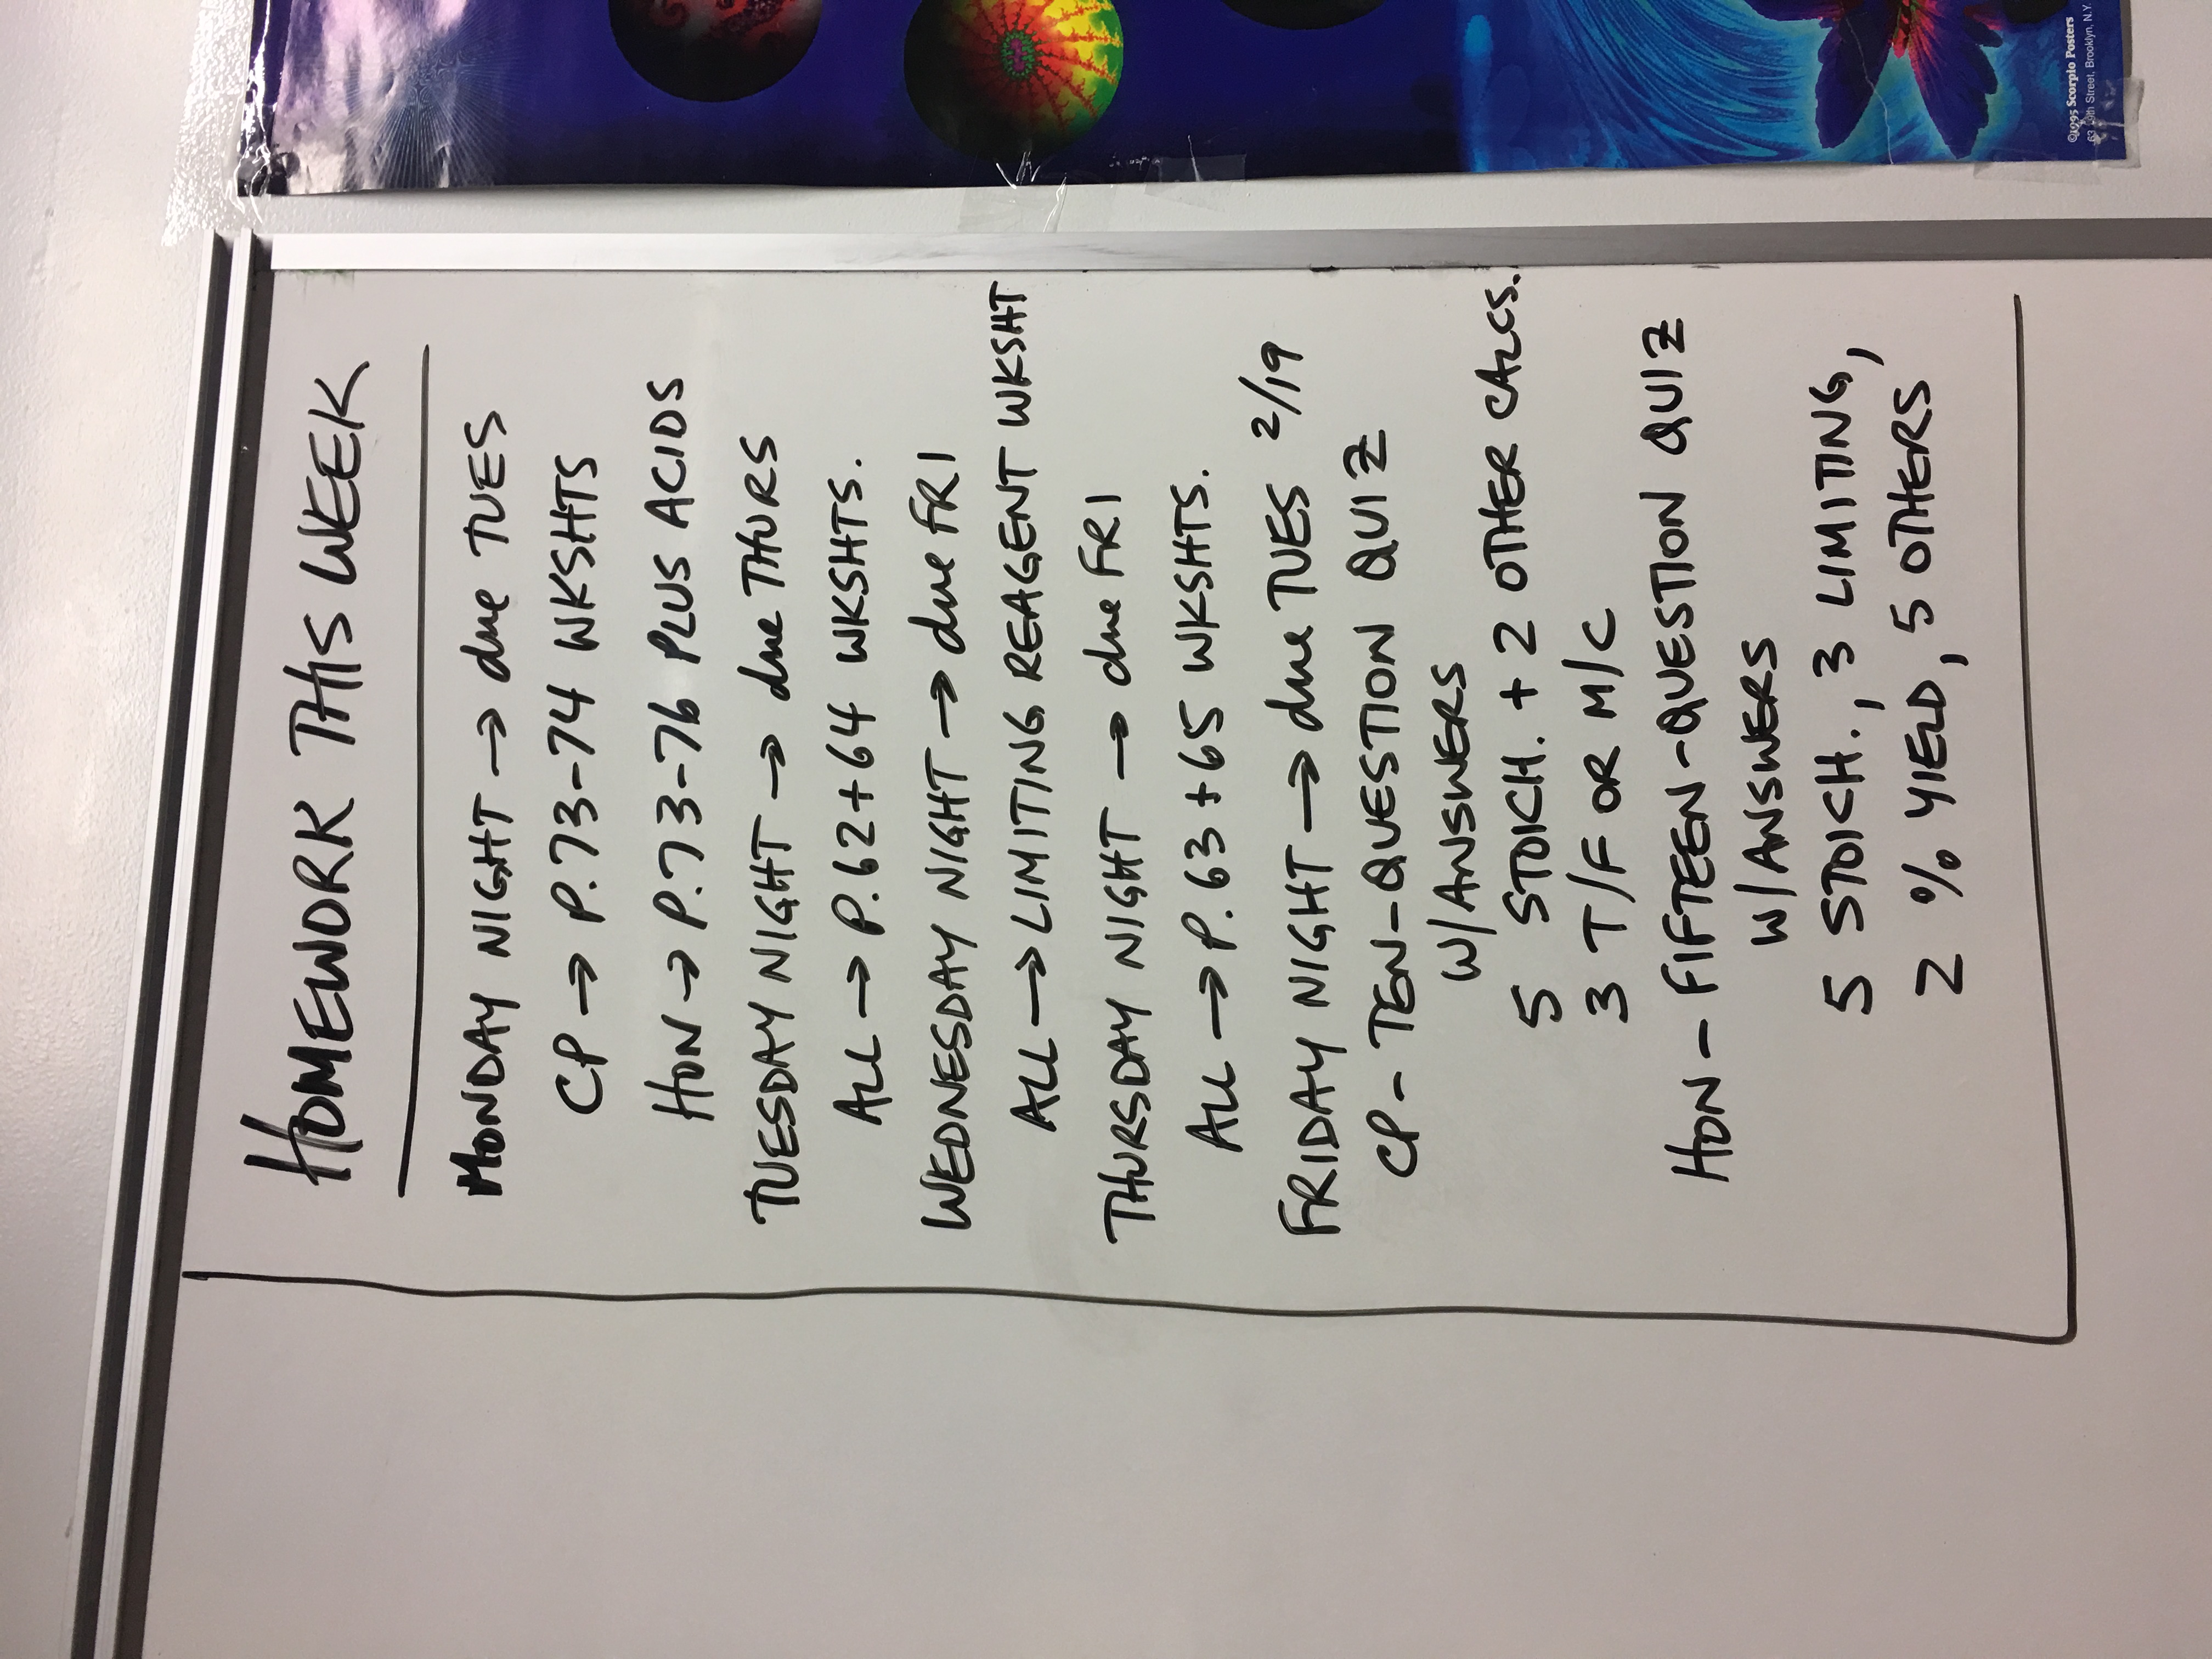 ©1995 Scorpio Posters
63 19th Street, Brooklyn, N.Y.
HOMEWORK THIS WEEK
MONDAY NIGHT → due TUES
CP → P.73-74 WKSHTS
HON → P.73-76 PLUS ACIDS
TUESDAY NIGHT → due THURS
ALL → P.62+64 WKSHTS.
WEDNESDAY NIGHT → due FRI
ALL → LIMITING REAGENT WKSHT
THURSDAY NIGHT → due FRI
ALL → P.63+65 WKSHTS.
FRIDAY NIGHT → due TUES 2/19
CP - TEN-QUESTION QUIZ
W/ANSWERS
5 STOICH. + 2 OTHER CALCS.
3 T/F OR M/C
HON - FIFTEEN-QUESTION QUIZ
W/ANSWERS
5 STOICH., 3 LIMITING,
2 % YIELD, 5 OTHERS